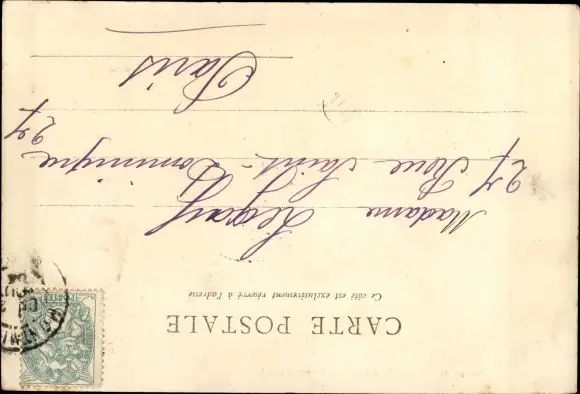 CARTE POSTALE
Ce côté est exclusivement réservé à l'adresse
Madame
27 Rue Saint-Dominique 27
Paris